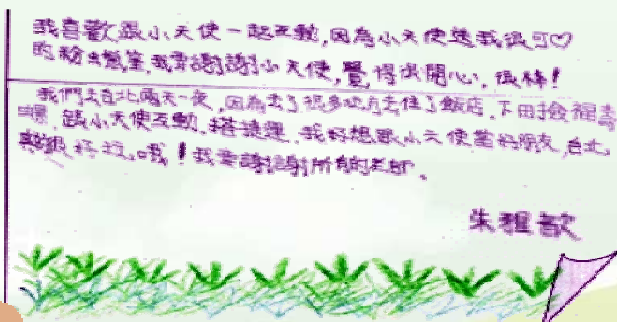 我喜歡跟小天使一起互動,因為小天使送我很可♡
的粉蠟筆,我要謝謝小天使,覺得很開心,很棒!
我們去台北兩天一夜,因為去了很多地方去住了飯店、下田撿福壽
螺、跟小天使互動、搭捷運、我好想跟小天使當好朋友,台北
離很好玩哦!我要謝謝所有的老師。
朱